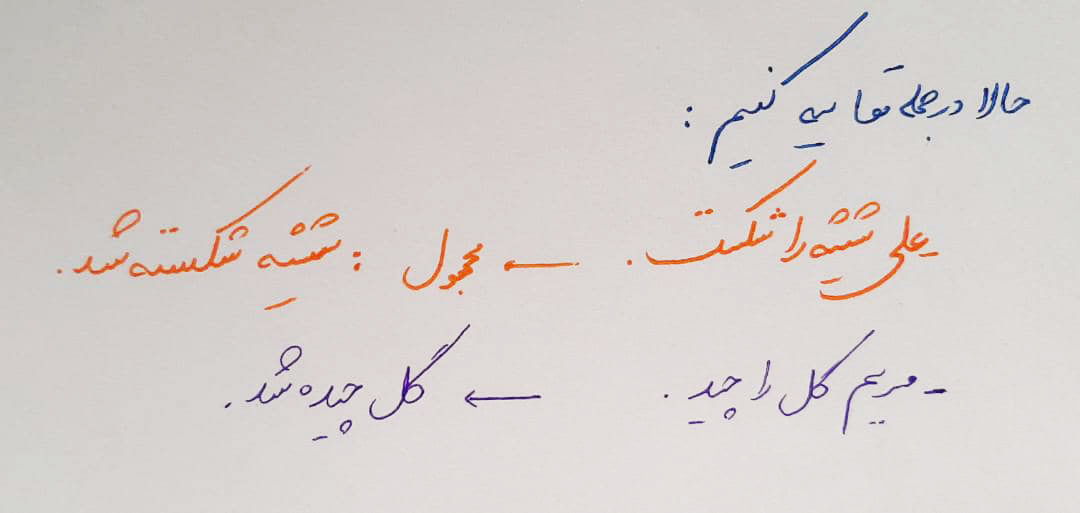 حالا در جمله مقایسه کنیم :
علی شیشه را شکست . ← مجهول : شیشه شکسته شد .
- مریم گل را چید . ← گل چیده شد .